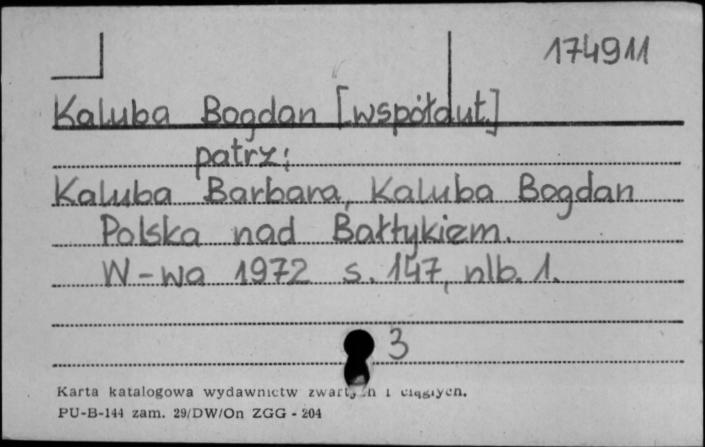 174911
Kaluba Bogdan [współaut.]
patrz:
Kaluba Barbara, Kaluba Bogdan
Polska nad Bałtykiem.
W-wa 1972 s. 147, nlb. 1.
3
Karta katalogowa wydawnictw zwartych i ciągłych.
PU-B-144 zam. 29/DW/On ZGG - 204